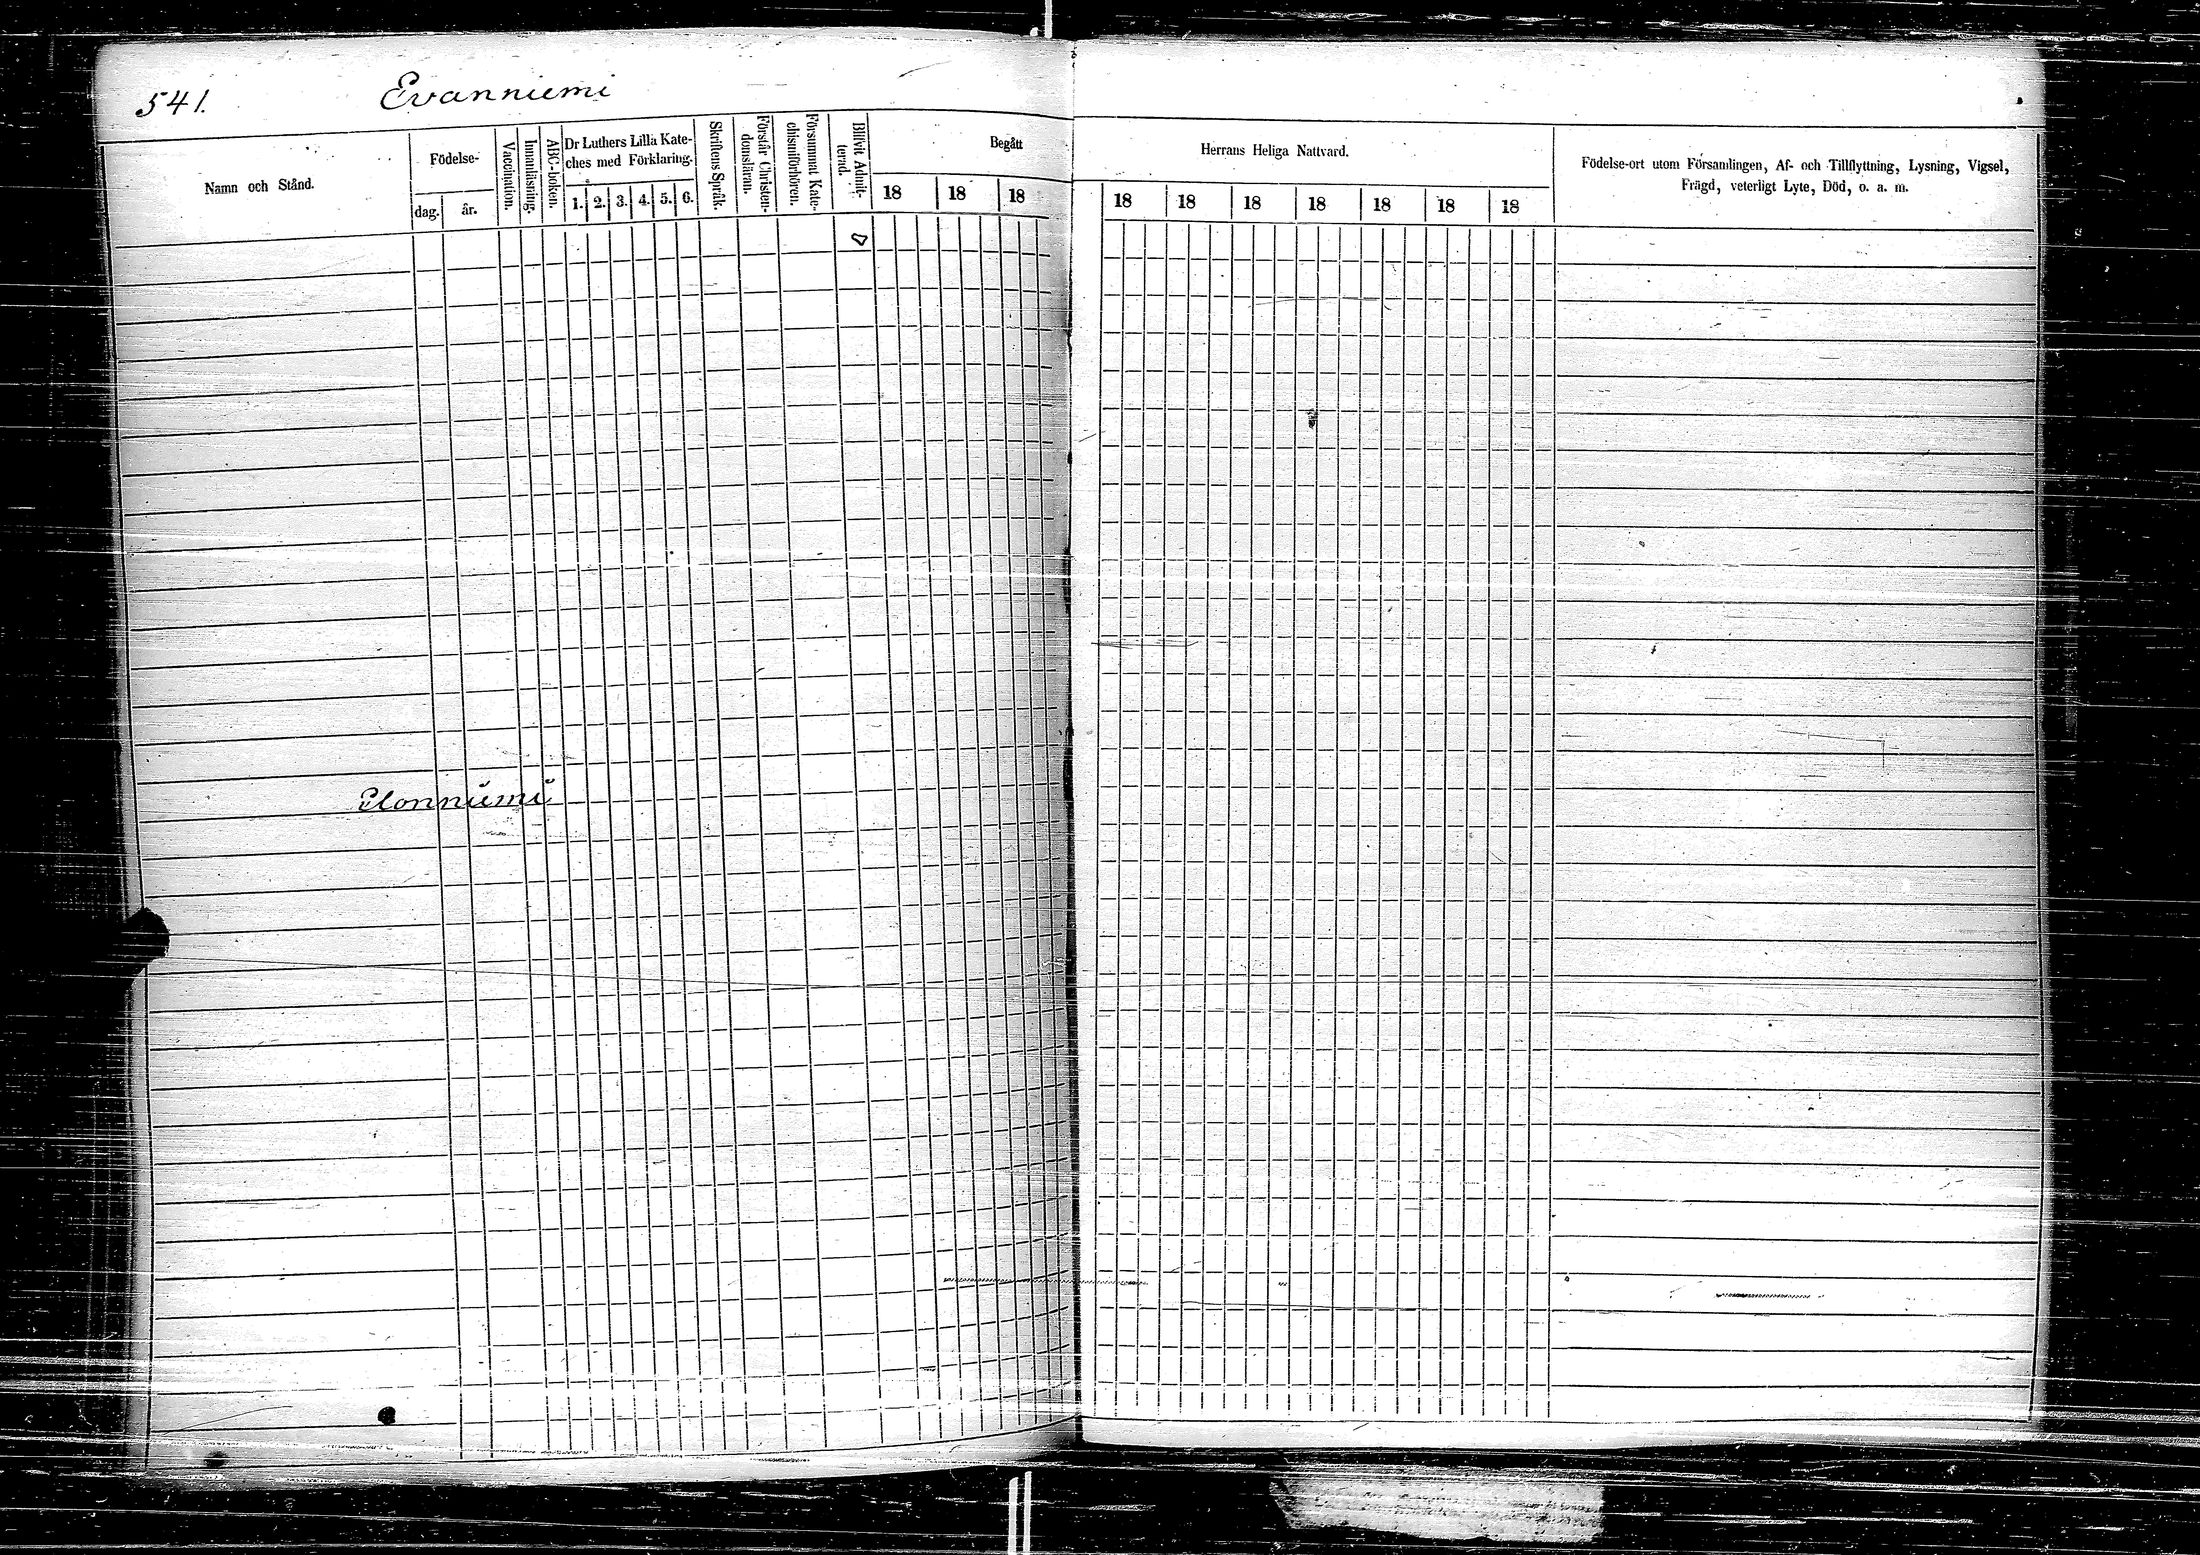 541. Evanniemi
Namn och Stånd.
Födelse-
dag.
år.
Vaccination.
Innanläsning.
ABC-boken.
Dr Luthers Lilla Kate-
ches med Förklaring.
1. 2. 3. 4. 5. 6.
Skriftens Språk.
Förstår Christen-
domsläran.
Försummat Kate-
chismiförhören.
Blifvit Admit-
terad.
Begått
18 18 18
Herrans Heliga Nattvard.
18 18 18 18 18 18 18
Födelse-ort utom Församlingen, Af- och Tillflyttning, Lysning, Vigsel,
Frägd, veterligt Lyte, Död, o. a. m.